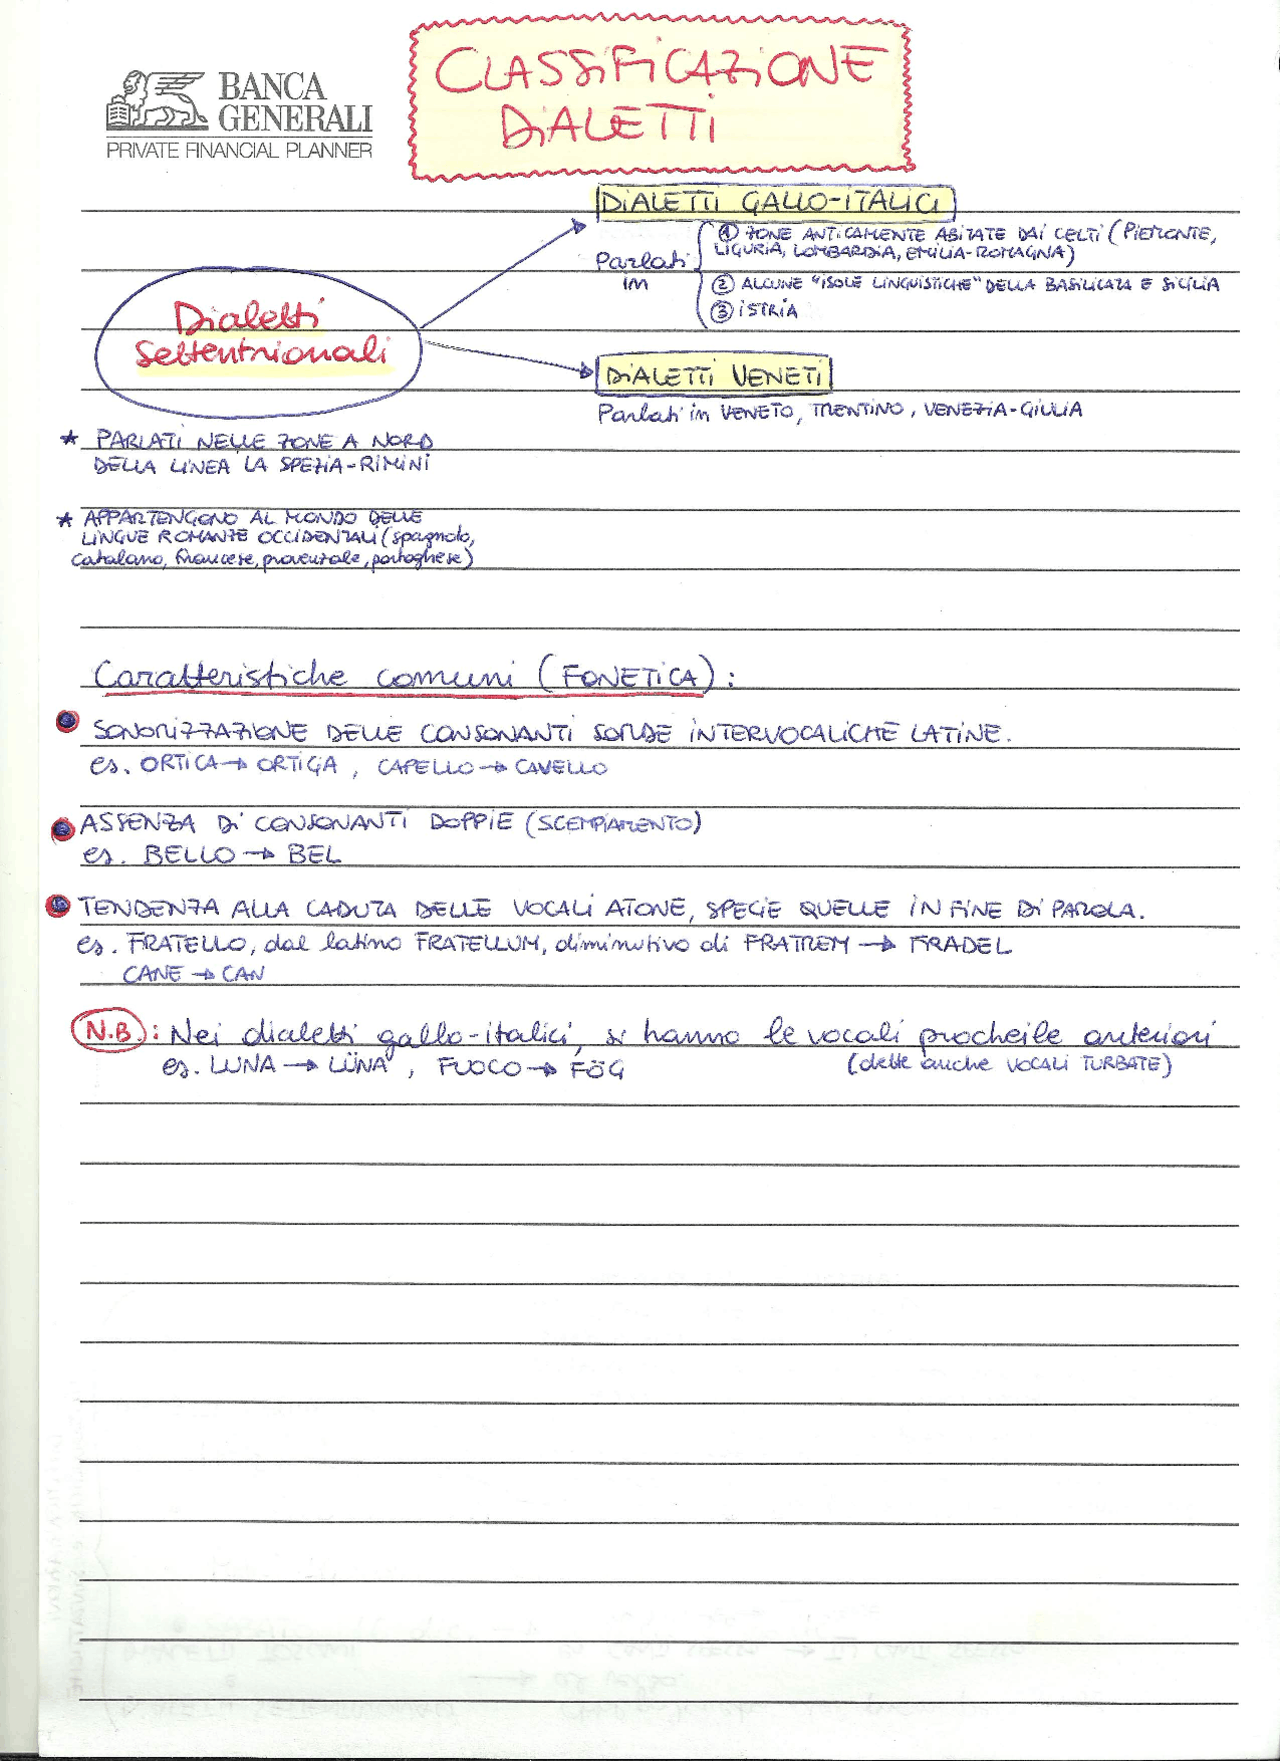 BANCA
GENERALI
PRIVATE FINANCIAL PLANNER
CLASSIFICAZIONE
DIALETTI
DIALETTI GALLO-ITALICI
Parlati in
① ZONE ANTICAMENTE ABITATE DAI CELTI (PIEMONTE,
LIGURIA, LOMBARDIA, EMILIA-ROMAGNA)
② ALCUNE "ISOLE LINGUISTICHE" DELLA BASILICATA E SICILIA
③ ISTRIA
Dialetti
Settentrionali
DIALETTI VENETI
Parlati in VENETO, TRENTINO, VENEZIA-GIULIA
* PARLATI NELLE ZONE A NORD
DELLA LINEA LA SPEZIA-RIMINI
* APPARTENGONO AL MONDO DELLE
LINGUE ROMANZE OCCIDENTALI (spagnolo,
catalano, francese, provenzale, portoghese)
Caratteristiche comuni (FONETICA):
SONORIZZAZIONE DELLE CONSONANTI SORDE INTERVOCALICHE LATINE.
es. ORTICA → ORTIGA, CAPELLO → CAVELLO
ASSENZA DI CONSONANTI DOPPIE (SCEMPIAMENTO)
es. BELLO → BEL
TENDENZA ALLA CADUTA DELLE VOCALI ATONE, SPECIE QUELLE IN FINE DI PAROLA.
es. FRATELLO, dal latino FRATELLUM, diminutivo di FRATREM → FRADEL
CANE → CAN
N.B.: Nei dialetti gallo-italici, si hanno le vocali procheile anteriori
es. LUNA → LÜNA, FUOCO → FÖG
(dette anche VOCALI TURBATE)